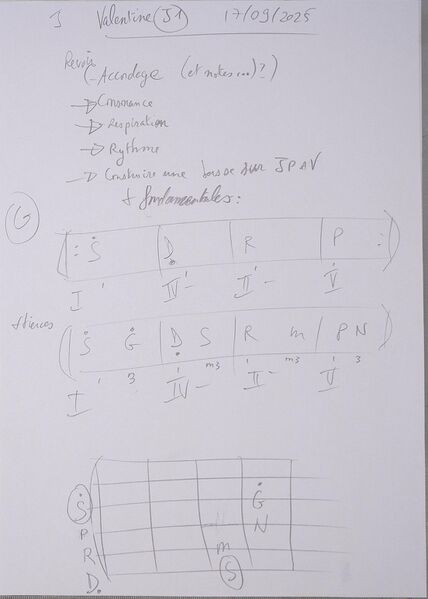 J Valentine (J1) 17/09/2025
Revoir
- Accordage (et notes...)?)
→ Consonance
→ Respiration
→ Rythme
→ Construire une basse sur
+ fondamentales:
G
S D R P
I IV- II- V
+ tierces
S G D S R m P N
3 m3 m3 3
I IV- II- V
S G
P N
R m
D S